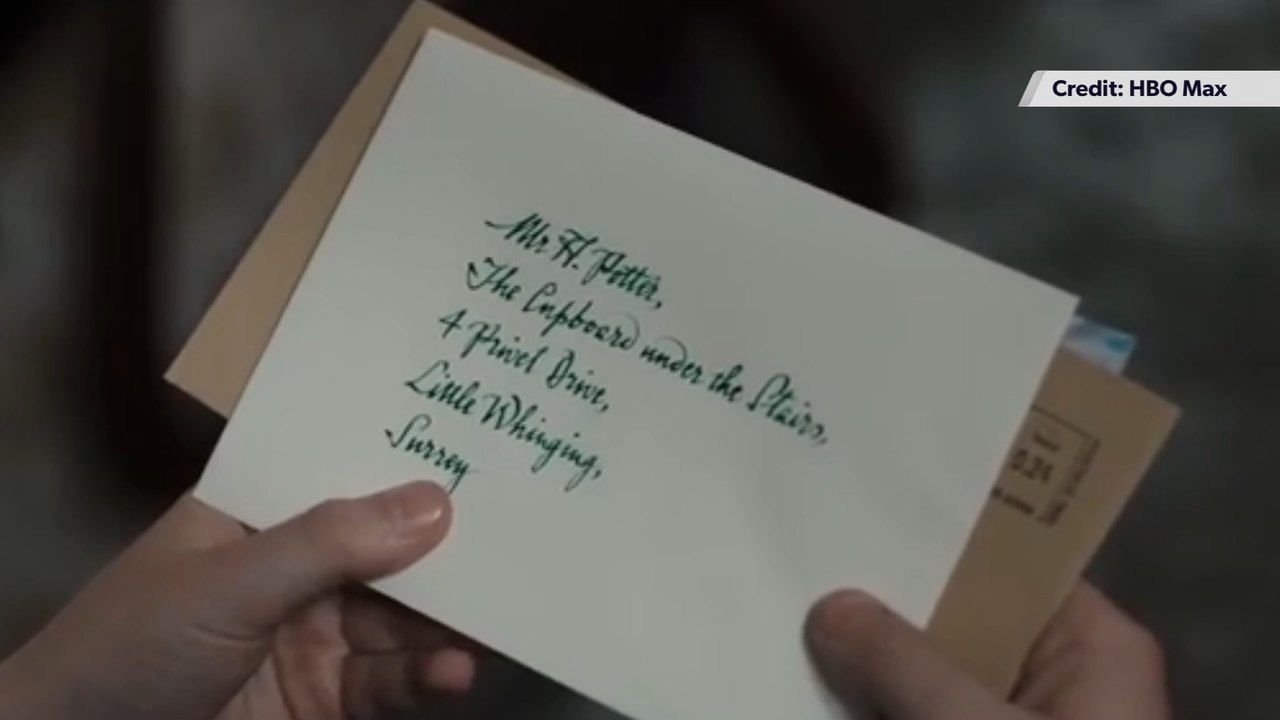 Credit: HBO Max
Mr H. Potter,
The Cupboard under the Stairs,
4 Privet Drive,
Little Whinging,
Surrey
0.24